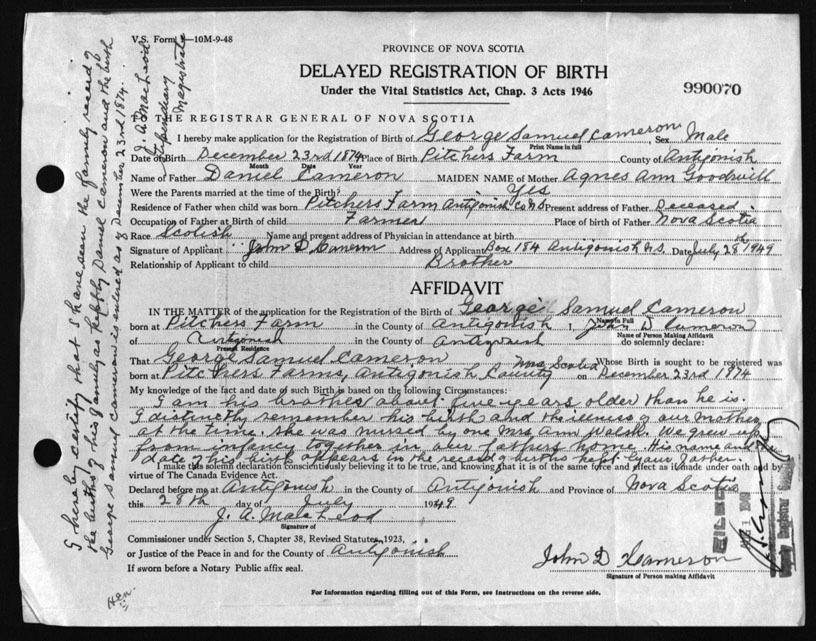 V.S. Form -10M-9-48
PROVINCE OF NOVA SCOTIA
DELAYED REGISTRATION OF BIRTH
990070
Under the Vital Statistics Act, Chap. 3 Acts 1946
TO THE REGISTRAR GENERAL OF NOVA SCOTIA
I hereby make application for the Registration of Birth of George Samuel Cameron, Sex Male
Print Name in full
Date of Birth December 23rd 1874 Place of Birth Pitchers Farm County of Antigonish
Month Date Year
Name of Father Daniel Cameron MAIDEN NAME of Mother Agnes Ann Goodwill
Were the Parents married at the time of the Birth? Yes
Residence of Father when child was born Pitchers Farm Antigonish Co N.S. Present address of Father Deceased
Occupation of Father at Birth of child Farmer Place of birth of Father Nova Scotia
Race Scotish Name and present address of Physician in attendance at birth
Signature of Applicant John D Cameron Address of Applicant Box 184 Antigonish N.S. Date July 28th 1949
Relationship of Applicant to child Brother
AFFIDAVIT
IN THE MATTER of the application for the Registration of the Birth of George Samuel Cameron
Name in Full
born at Pitchers Farm in the County of Antigonish I, John D Cameron
Name of Person Making Affidavit
of Antigonish in the County of Antigonish do solemnly declare:
Present Residence
That George Samuel Cameron Whose Birth is sought to be registered was
born at Pitchers Farms, Antigonish County Nova Scotia on December 23rd 1874
My knowledge of the fact and date of such Birth is based on the following Circumstances:
I am his brother about five years older than he is.
I distinctly remember his birth and the illness of our Mother
at the time. She was nursed by one Mrs Ann Walsh. We grew up
from infancy together in our fathers home. His name and the
date of his birth appears in the record of births kept by our father.
I make this solemn declaration conscientiously believing it to be true, and knowing that it is of the same force and effect as if made under oath and by
virtue of The Canada Evidence Act.
Declared before me at Antigonish in the County of Antigonish and Province of Nova Scotia
this 28th day of July 1949
J. A. MacLeod
Signature of
Commissioner under Section 5, Chapter 38, Revised Statutes, 1923,
or Justice of the Peace in and for the County of Antigonish
If sworn before a Notary Public affix seal.
John D Cameron
Signature of Person making Affidavit
For Information regarding filling out of this Form, see Instructions on the reverse side.
I hereby certify that I have seen the family record of
the births of his family as kept by Daniel Cameron and the birth of
George Samuel Cameron is entered as of December 23rd 1874.
J. A. MacLeod
Stipendiary
Magistrate
FILED